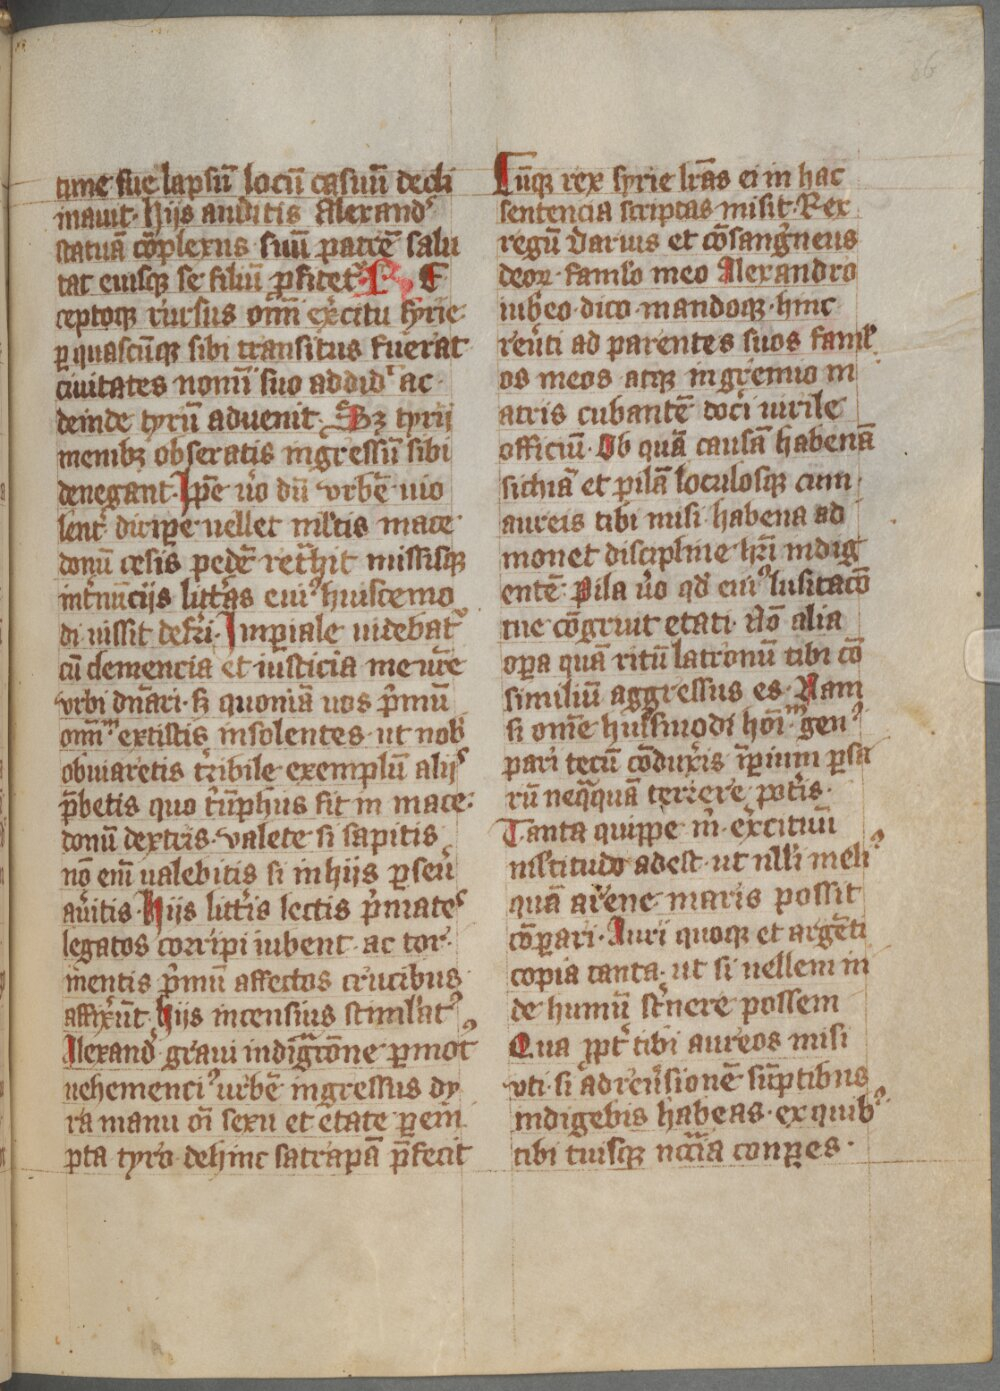 tune sue lapsū locū casuū decli
nauit· hijs auditis Alexandˢ
statuā cōplexus suū patrē salu
tat eiusq̨ se filiū ꝓfitetˢ R̨ E
ceptoq̨ rursus om̄i exˢcitu syrie·
ꝑ quascūq̨ sibi transitus fuerat
ciuitates nomī suo addidˢ ac·
deinde tyrū aduenit· Sꝫ tyrij
menibꝫ obseratis ingressū sibi
denegant· Ip̄e u̓o dū vrbē uio
lentˢ diripe uellet ml̓tis mace
donū cesis pedē ret̓hit missisq̨
int̓nūcijs litt̓as eiꝰ huiscemo
di iussit defˢri· Imꝑiale uidebatˢ
cū clemencia et iusticia me ur̄e
vrbi dn̄ari· sꝫ quoniā uos pˢmū
om̄m extistis insolentes· ut nobˢ
obuiaretis tˢribile exemplū alijˢ
p̄betis quo tˢūphus fit in mace·
donū dextris· valete si sapitis
nō em̄ ualebitis si in hijs ꝑseu̓
au̓itis· Hijs litt̓is lectis pˢmates
legatos corripi iubent· ac tor·
mentis pˢmū affectos crucibus
affix̓ūt· hijs incensius stimlatꝰ
Alexandˢ graui indigr̄one ꝑmotꝰ
uehemenciꝰ urbē ingressus dy
ra manu oī sexu et etate ꝑem̄
pta tyro· dehinc satrapā p̄fecit
Cūq̨ rex syrie lr̄as ei in hac
sentencia scriptas misit· Rex
regū Darius et cōsangˢneus
deoꝝ· famlo meo Alexandro
iubeo dico mandoq̨· hinc
reu̓ti ad parentes suos famlˢ
os meos atq̨ in gremio m
atris cubantē doci uirile
officiū· Ob quā causā habenā
sichiā et pilā loculosq̨ cum·
aureis tibi misi· habena ad
monet discipline hr̄i indig
entē· Pila u̓o qd̓ eiꝰ lusitacō
tue cōgruit etati· Nō alia
oꝑa quā ritū latronū tibi cō
similiū aggressus es· Nam
si om̄e huˢsmodi hoīm genꝰ
pari tecū cōdux̓is īꝑium ꝑsa
rū neq̨quā terrere pot̓is·
Tanta quippe m̄ ex̓cituū
ml̓titudo adest· ut nlli meliꝰ
quā arene maris possit
cōꝑari· Auri quoq̨ et argēti
copia tanta· ut si uellem in
de humū st̓nere possem
Qua ꝓpt̓ tibi aureos misi
vti· si ad reu̓sionē sūptibus
indigebis habeas· ex quibꝰ
tibi tuisq̨ nccīa conꝑes·